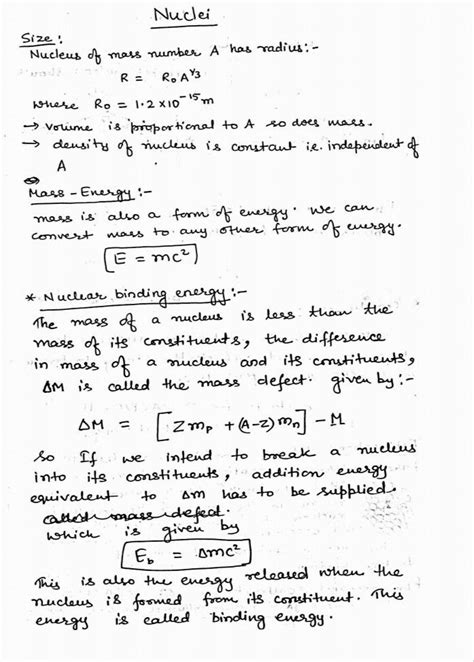 Nuclei
Size :
Nucleus of mass number A has radius:-
R = R₀A^1/3
where R₀ = 1.2 x 10⁻¹⁵ m
→ volume is proportional to A so does mass.
→ density of nucleus is constant i.e. independent of
A
Mass - Energy :-
mass is also a form of energy. We can
convert mass to any other form of energy.
E = mc²
* Nuclear binding energy :-
The mass of a nucleus is less than the
mass of its constituents, the difference
in mass of a nucleus and its constituents,
ΔM is called the mass defect. given by :-
ΔM = [Zmₚ + (A-Z)mₙ] - M
So If we intend to break a nucleus
into its constituents, addition energy
equivalent to Δm has to be supplied
called mass defect.
which is given by
E_b = Δmc²
This is also the energy released when the
nucleus is formed from its constituent. This
energy is called binding energy.